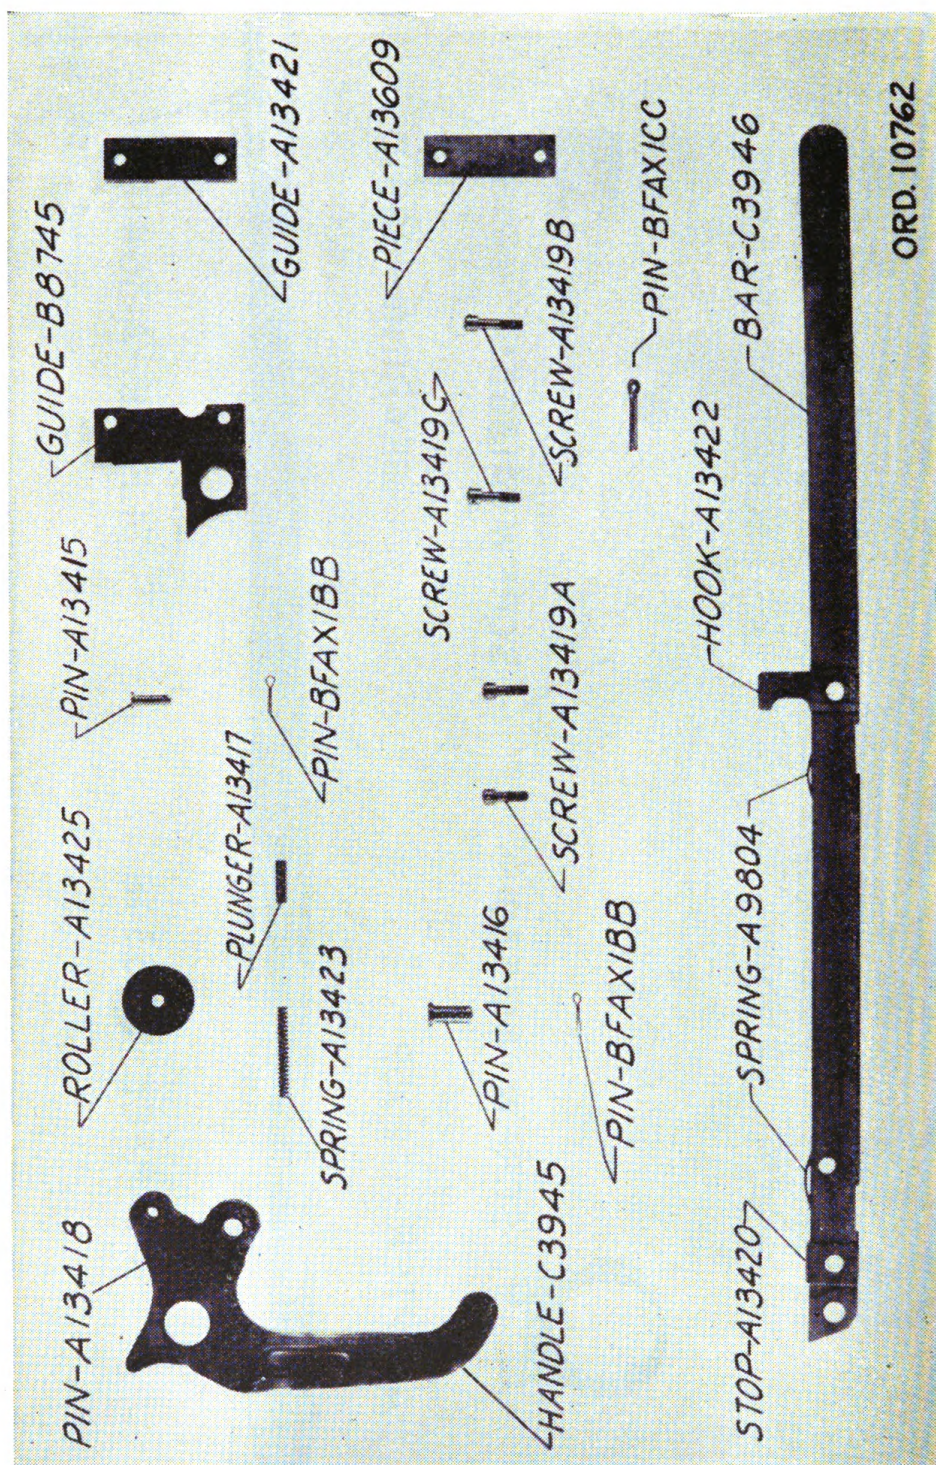 PIN-A13418
ROLLER-A13425
PIN-A13415
GUIDE-B8745
GUIDE-A13421
PLUNGER-A13417
SPRING-A13423
PIN-BFAX1BB
PIECE-A13609
HANDLE-C3945
PIN-A13416
SCREW-A13419C
SCREW-A13419B
SCREW-A13419A
PIN-BFAX1BB
PIN-BFAX1CC
STOP-A13420
SPRING-A9804
HOOK-A13422
BAR-C3946
ORD. 10762